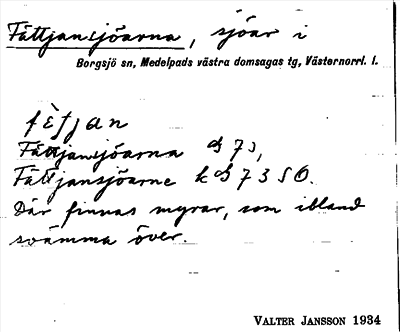 Fättjansjöarna, sjöar i
Borgsjö sn, Medelpads västra domsagas tg, Västernorrl. l.
fètjan
Fättjansjöarna 73,
Fättjansjöarne k 73 SÖ.
Där finnas myrar, som ibland
svämma över.
VALTER JANSSON 1934